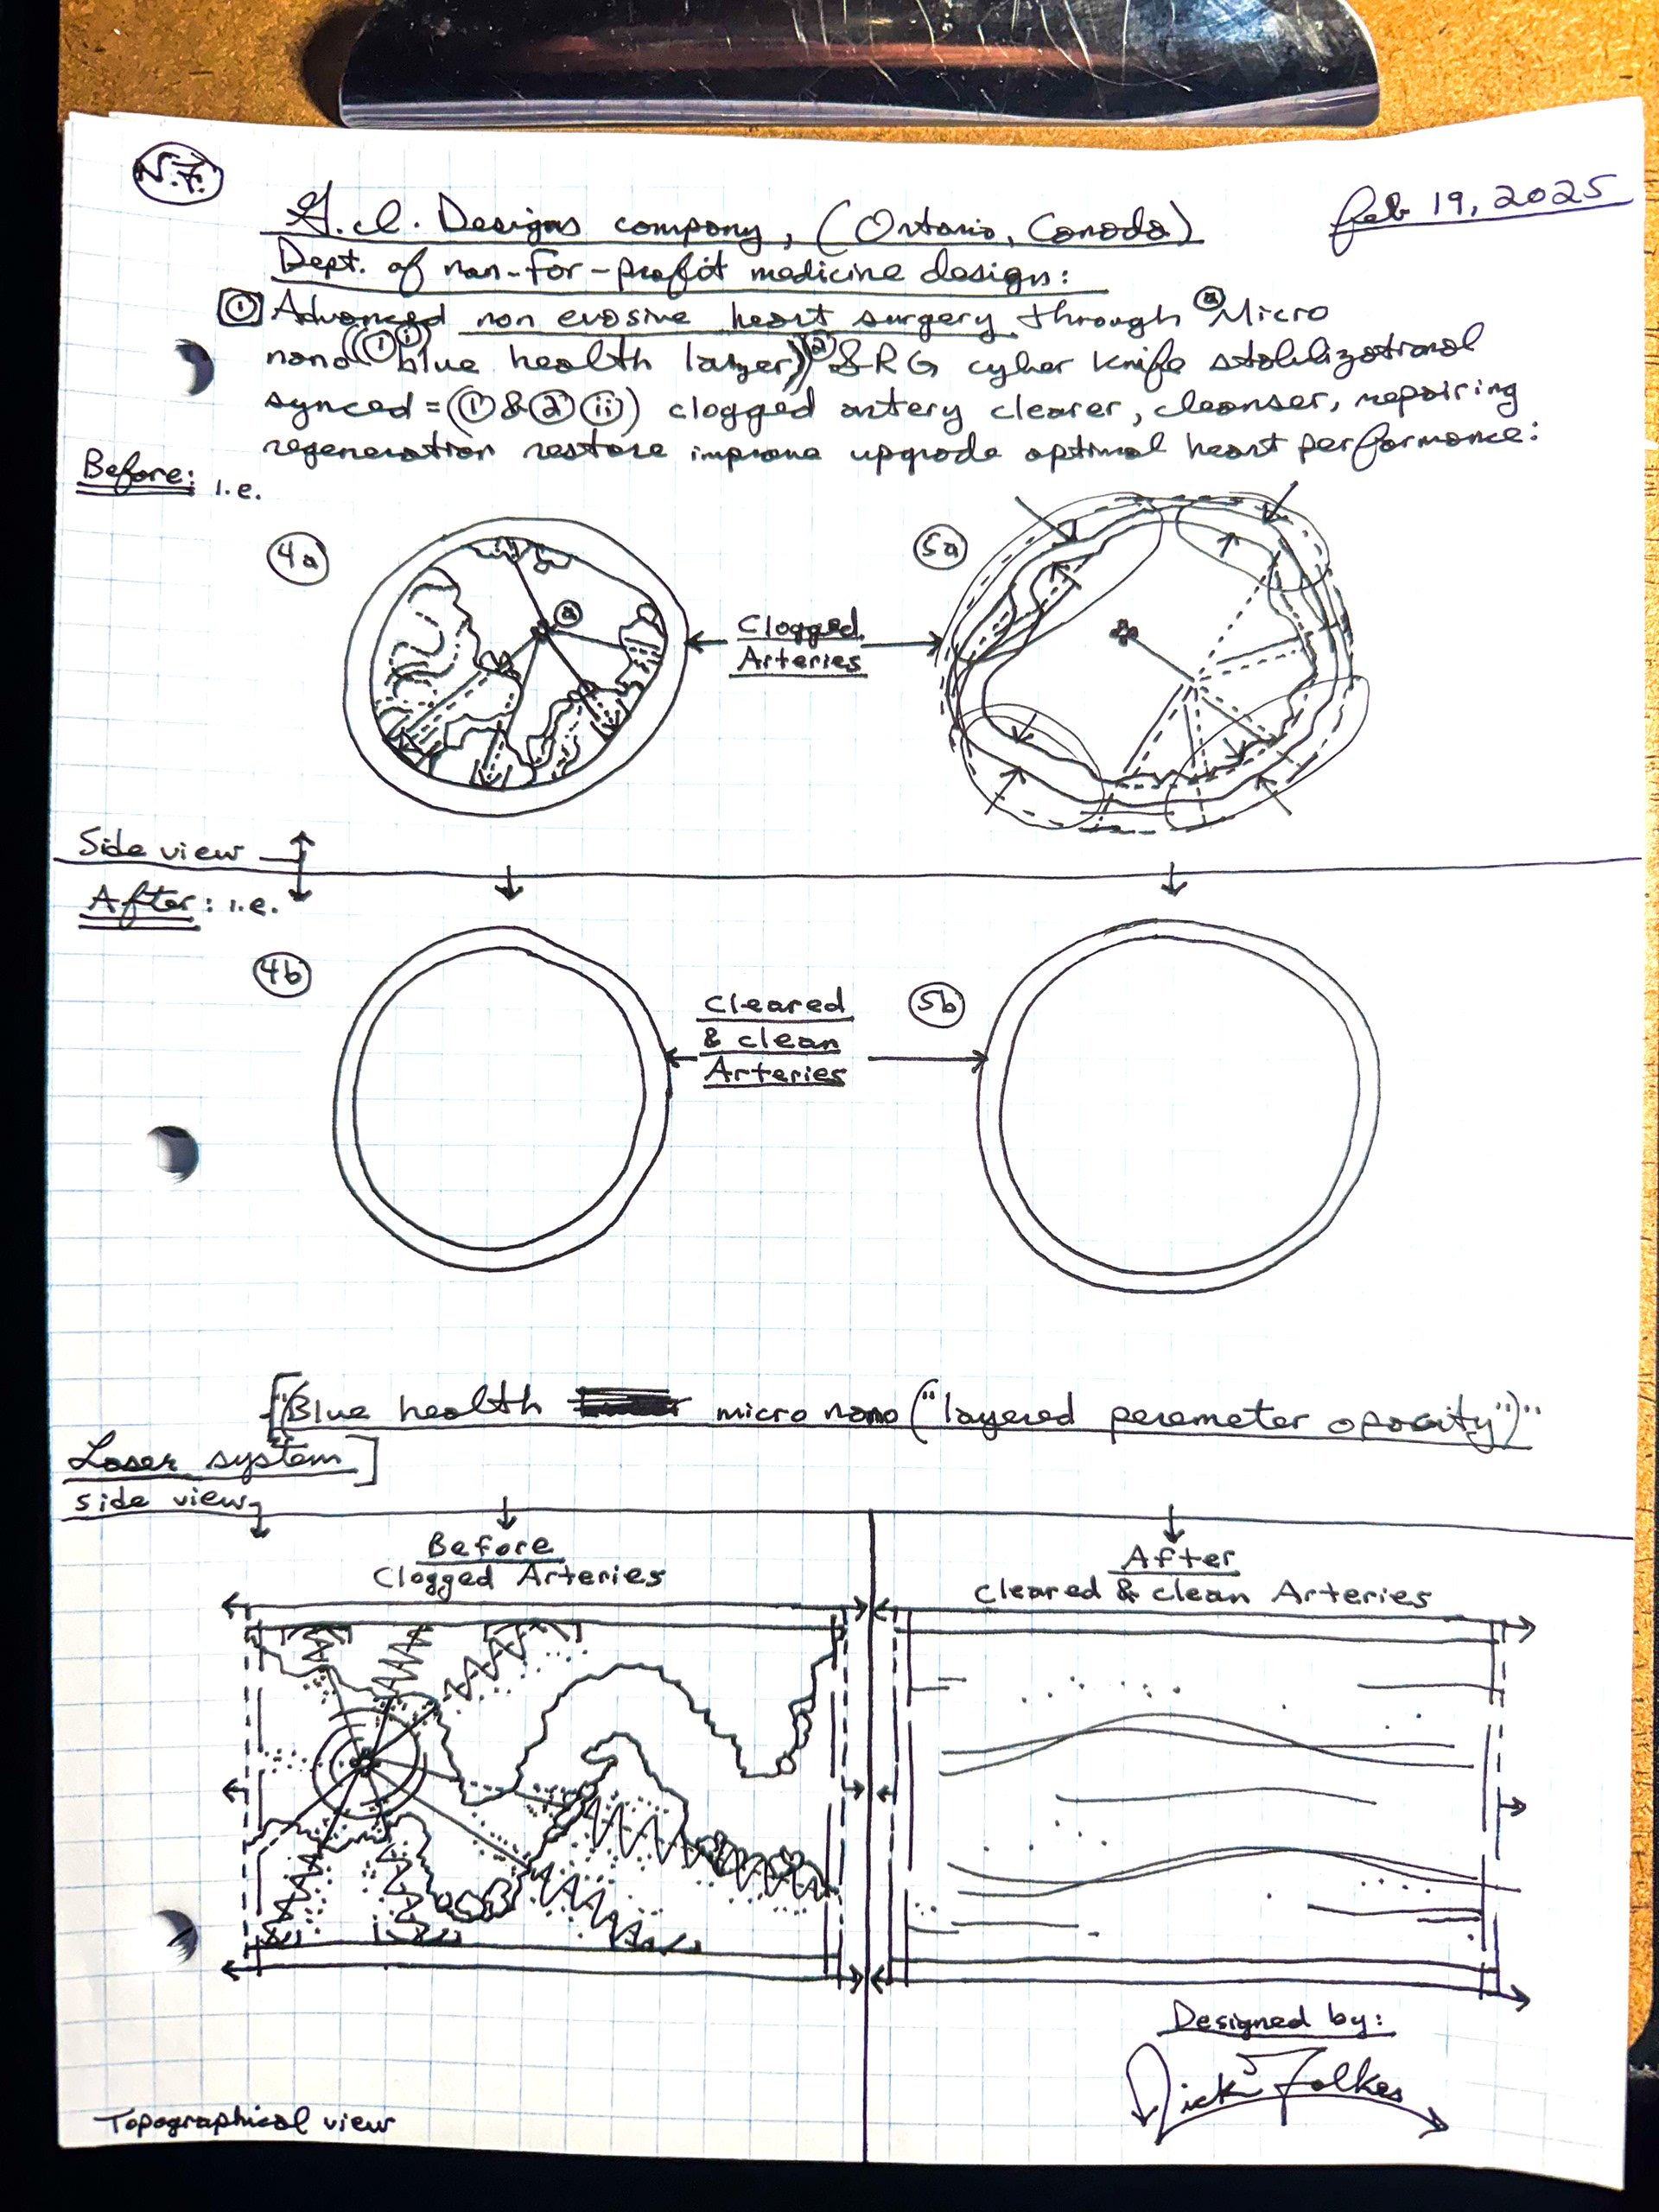 N.F.
Feb 19, 2025
Designs company, (Ontario, Canada)
Dept. of non-for-profit medicine design:
① Advanced non evosive heart surgery through ⓐ Micro
nano ((① ⓘ blue health layer)) ② & RG cyber knife stabilizational
synced = (① & ② ⓘⓘ) clogged artery clearer, cleanser, repairing
regeneration restore improve upgrade optimal heart performance:
Before: i.e.
4a
5a
ⓐ
Clogged
Arteries
Side view
After: i.e.
4b
5b
Cleared
& clean
Arteries
[("Blue health micro nano ("layered peremeter opacity")"
Laser system]
side view
Before
Clogged Arteries
After
Cleared & clean Arteries
Designed by:
Nick Folkes
Topographical view